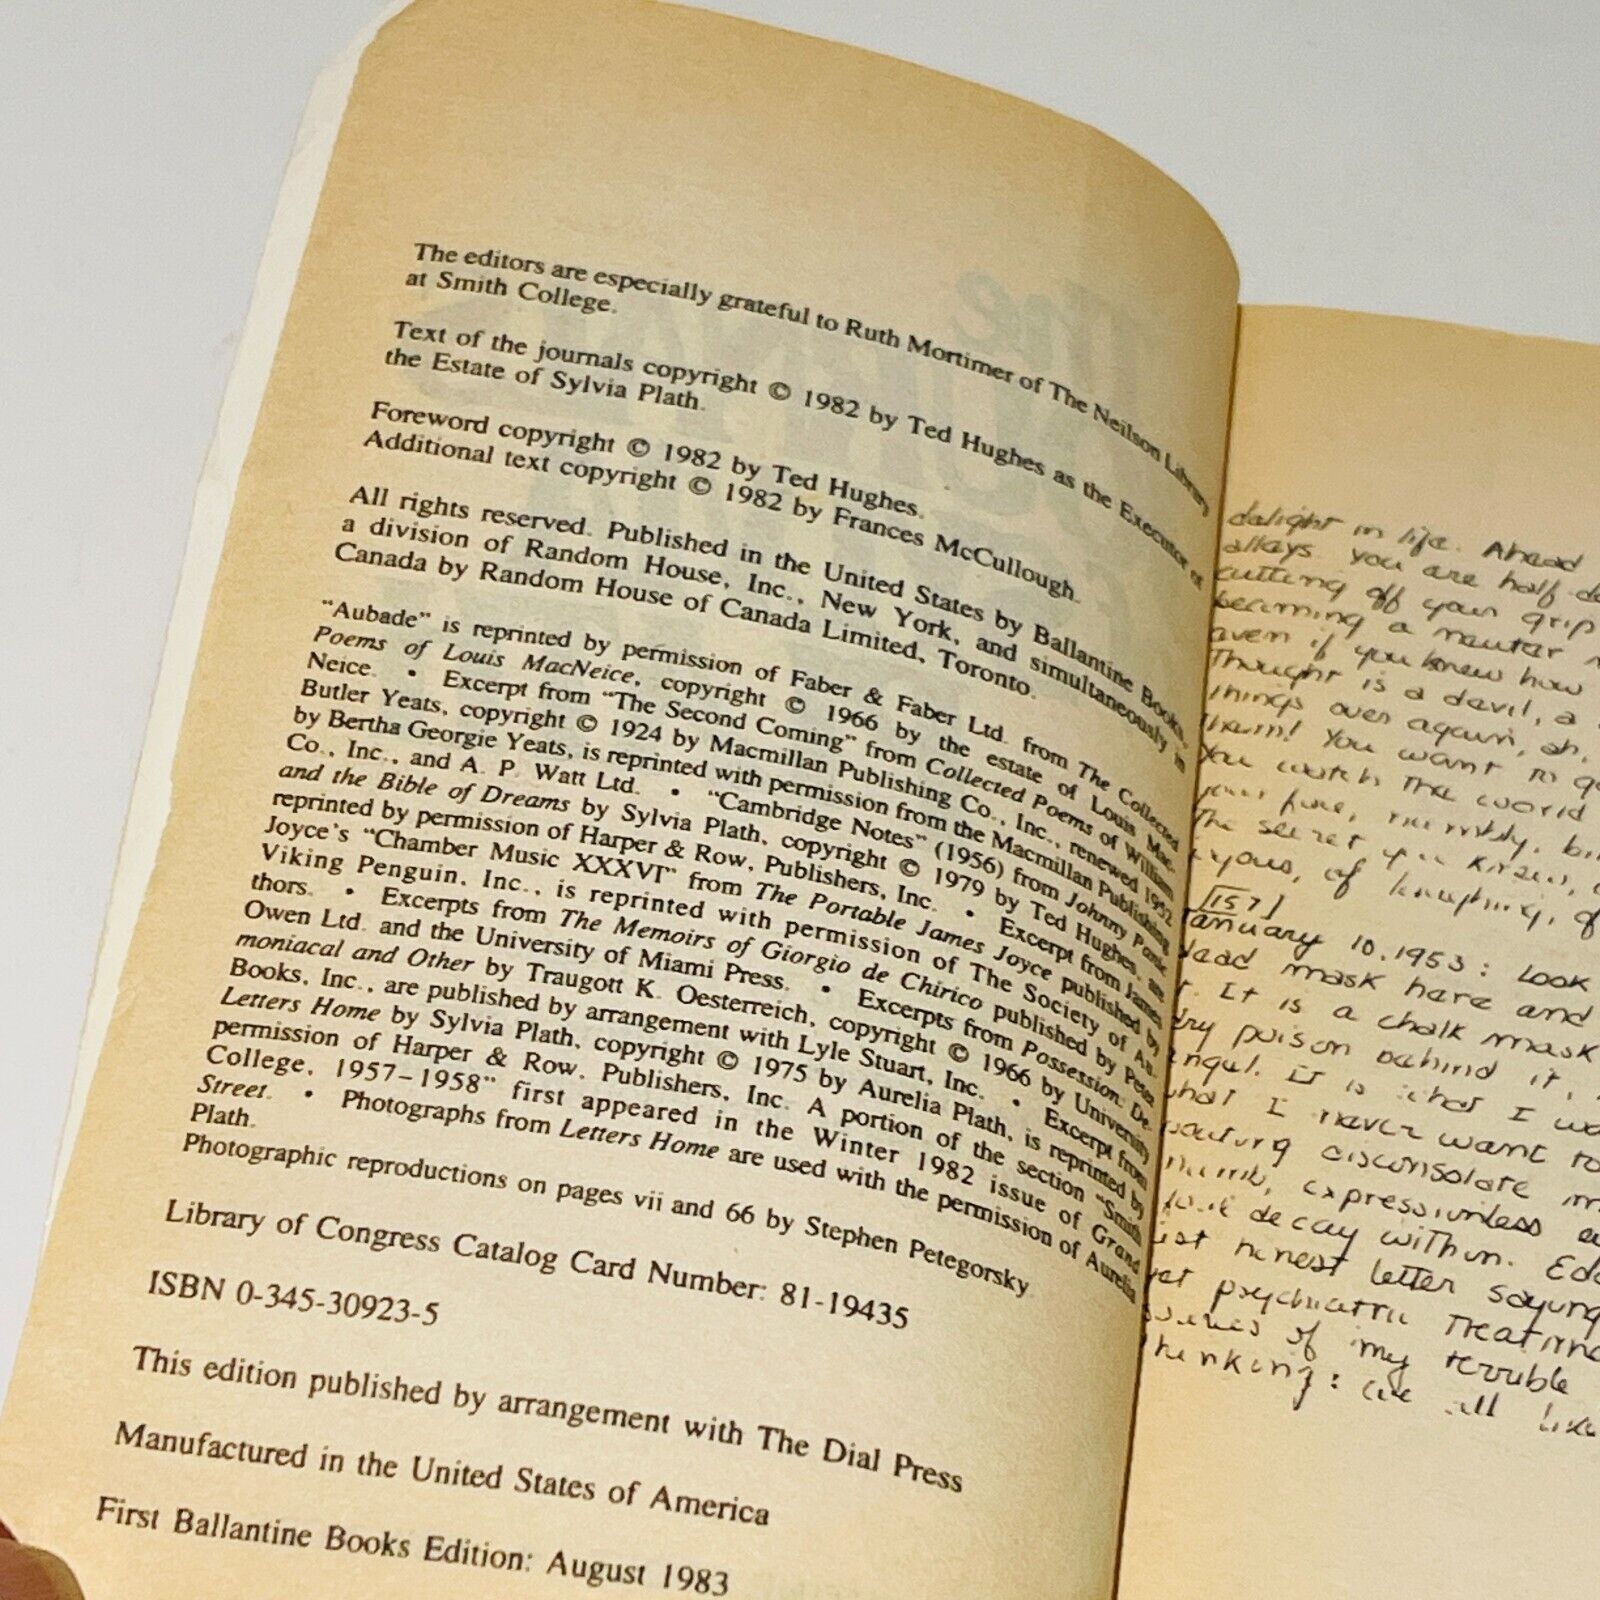 The editors are especially grateful to Ruth Mortimer of The Neilson Library
at Smith College.
Text of the journals copyright © 1982 by Ted Hughes as the Executor of
the Estate of Sylvia Plath.
Foreword copyright © 1982 by Ted Hughes.
Additional text copyright © 1982 by Frances McCullough.
All rights reserved. Published in the United States by Ballantine Books,
a division of Random House, Inc., New York, and simultaneously in
Canada by Random House of Canada Limited, Toronto.
"Aubade" is reprinted by permission of Faber & Faber Ltd. from The Collected
Poems of Louis MacNeice, copyright © 1966 by the estate of Louis Mac-
Neice. • Excerpt from "The Second Coming" from Collected Poems of William
Butler Yeats, copyright © 1924 by Macmillan Publishing Co., Inc., renewed 1952
by Bertha Georgie Yeats, is reprinted with permission from the Macmillan Publishing
Co., Inc., and A. P. Watt Ltd. • "Cambridge Notes" (1956) from Johnny Panic
and the Bible of Dreams by Sylvia Plath, copyright © 1979 by Ted Hughes, are
reprinted by permission of Harper & Row, Publishers, Inc. • Excerpt from James
Joyce's "Chamber Music XXXVI" from The Portable James Joyce published by
Viking Penguin, Inc., is reprinted with permission of The Society of Au-
thors. • Excerpts from The Memoirs of Giorgio de Chirico published by Peter
Owen Ltd. and the University of Miami Press. • Excerpts from Possession: De-
moniacal and Other by Traugott K. Oesterreich, copyright © 1966 by University
Books, Inc., are published by arrangement with Lyle Stuart, Inc. • Excerpt from
Letters Home by Sylvia Plath, copyright © 1975 by Aurelia Plath, is reprinted by
permission of Harper & Row, Publishers, Inc. A portion of the section "Smith
College, 1957–1958" first appeared in the Winter 1982 issue of Grand
Street. • Photographs from Letters Home are used with the permission of Aurelia
Plath.
Photographic reproductions on pages vii and 66 by Stephen Petegorsky
Library of Congress Catalog Card Number: 81-19435
ISBN 0-345-30923-5
This edition published by arrangement with The Dial Press
Manufactured in the United States of America
First Ballantine Books Edition: August 1983
delight in life. Ahead
alleys. You are half-de
cutting off your grip
becoming a neuter
even if you knew how
Thought is a devil, a
things over again, oh,
them! You want to
You watch the world
your fine,
The secret you
of laughing, of
[157]
January 10, 1953: Look
dead mask here and
It is a chalk mask
dry poison behind it,
It is what I
what I never want to
pouting disconsolate
numb, expressionless
decay within.
honest letter saying
psychiatric treatme
of my terrible
thinking: we all like